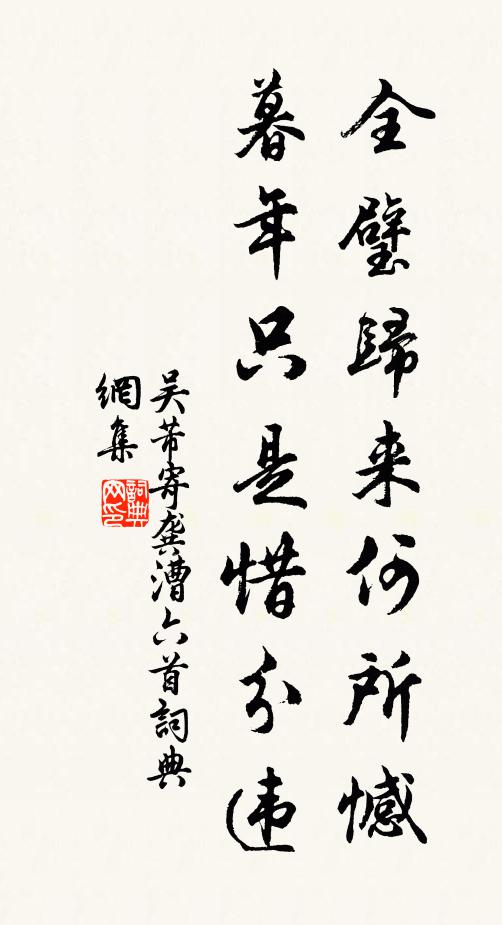 全璧歸来何所憾
暮年只是惜分违
吴芾寄龚漕六首詞典
網集
詞典
网印